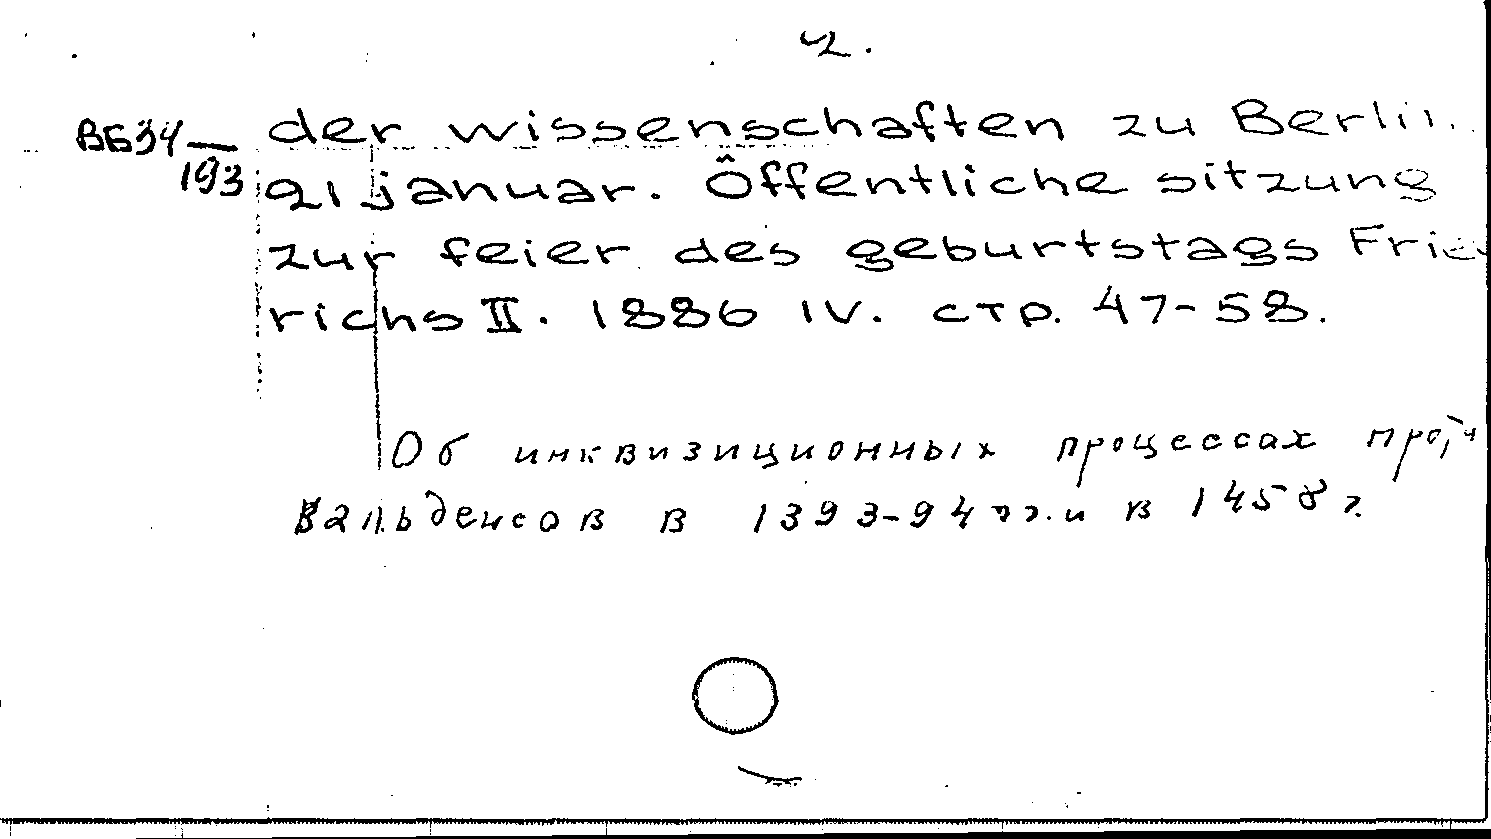 2.
ВБ34/193
der wissenschaften zu Berlin.
21 januar. Öffentliche sitzung
zur feier des geburtstags Fried
richs II. 1886 IV. стр. 47-58.
Об инквизиционных процессах
вальденсов в 1393-94 гг. и в 1458 г.